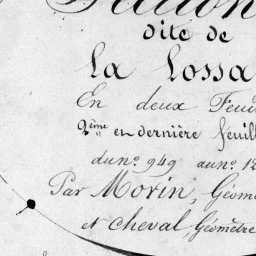 dite de
La Lossa
En deux Feui
2ème et dernière feuill
du nº 949 au nº 12
Par Morin, Géom
et Cheval Géomètre